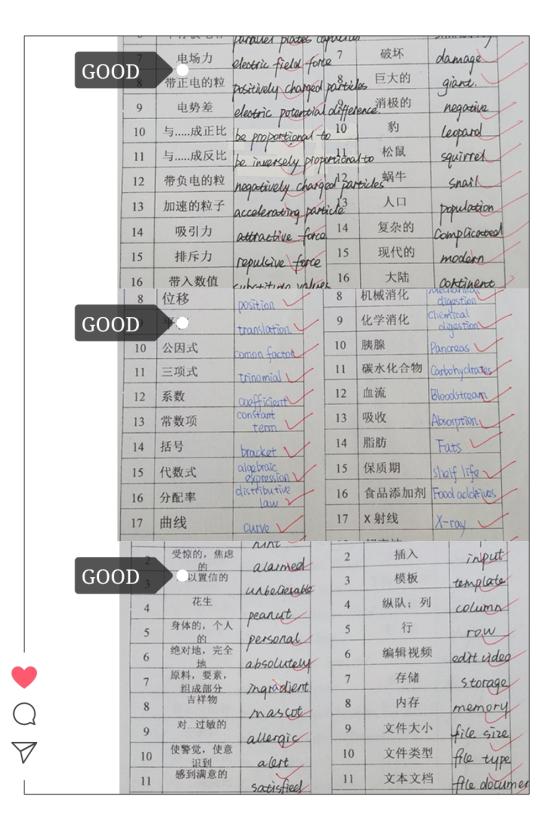 parallel plates capacitor
GOOD
7 电场力 electric field force 7 破坏 damage
8 带正电的粒 positively charged particles 8 巨大的 giant
9 电势差 electric potential difference 9 消极的 negative
10 与.....成正比 be proportional to 10 豹 leopard
11 与.....成反比 be inversely proportional to 11 松鼠 squirrel
12 带负电的粒 negatively charged particles 12 蜗牛 snail
13 加速的粒子 accelerating particle 13 人口 population
14 吸引力 attractive force 14 复杂的 complicated
15 排斥力 repulsive force 15 现代的 modern
16 带入数值 substitute values 16 大陆 continent
8 位移 position 8 机械消化 mechanical digestion
GOOD
translation 9 化学消化 chemical digestion
10 公因式 comon factor 10 胰腺 Pancreas
11 三项式 trinomial 11 碳水化合物 Carbohydrates
12 系数 coefficient 12 血流 Bloodstream
13 常数项 constant term 13 吸收 Absorption
14 括号 bracket 14 脂肪 Fats
15 代数式 algebraic expression 15 保质期 shelf life
16 分配率 distributive law 16 食品添加剂 Food additives
17 曲线 curve 17 X射线 X-ray
2 受惊的，焦虑的 alarmed 2 插入 input
GOOD
3 以置信的 unbelievable 3 模板 template
4 花生 peanut 4 纵队；列 column
5 身体的，个人的 personal 5 行 row
6 绝对地，完全地 absolutely 6 编辑视频 edit video
7 原料，要素，组成部分 ingradient 7 存储 storage
8 吉祥物 mascot 8 内存 memory
9 对...过敏的 allergic 9 文件大小 file size
10 使警觉，使意识到 alert 10 文件类型 file type
11 感到满意的 satisfied 11 文本文档 file documen